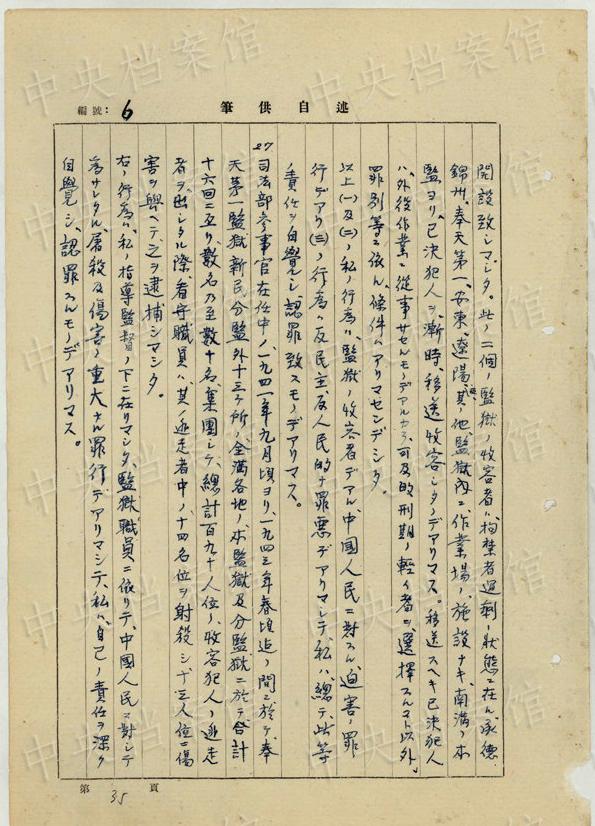 編號：6
述自供筆
開設致シマシタ。此ノ二個ノ監獄ノ收容者ハ拘禁者過剩ノ狀態ニ在ル承德
錦州、奉天第一、安東、遼陽其ノ他、監獄內ニ作業場ノ施設ナキ、南滿ノ本
監ヨリ、已決犯人ヲ漸時、移送收容シタノデアリマス。移送スヘキ已決犯人
ハ、外役作業ニ從事サセルモノデアルカラ、可及的刑期ノ輕イ者ヲ選擇スルコト以外、
罪別等ニ依ル條件ハアリマセンデシタ。
以上(一)及(二)ノ私ノ行為ハ、監獄ノ收容者デアル、中國人民ニ對スル、迫害ノ罪
行デアリ(三)ノ行為ハ反民主、反人民的ナ罪惡デアリマシテ、私ハ、總テ、此等
責任ヲ自覺シ、認罪致スモノデアリマス。
27 司法部參事官在任中ノ、一九四一年九月頃ヨリ、一九四三年春頃迄ノ間ニ於テ、奉
天第一監獄新民分監外十三ケ所ノ、全滿各地ノ、本監獄及分監獄ニ於テ合計
十六回ニ亙リ、數名乃至數十名、集團シテ、總計百九十人位ノ、收容犯人ノ逃走
者ヲ出シタル際、看守職員ハ、其ノ逃走者中ノ、十四名位ヲ射殺シ、十三人位ニ傷
害ヲ與ヘテ之ヲ逮捕シマシタ。
右ノ行為ハ、私ノ指導監督ノ下ニ在リマシタ、監獄職員ニ依リテ、中國人民ニ對シテ
為サレタル、屠殺及傷害ノ重大ナル罪行デアリマシテ、私ハ、自己ノ責任ヲ深ク
自覺シ、認罪スルモノデアリマス。
第 35 頁
中央档案馆